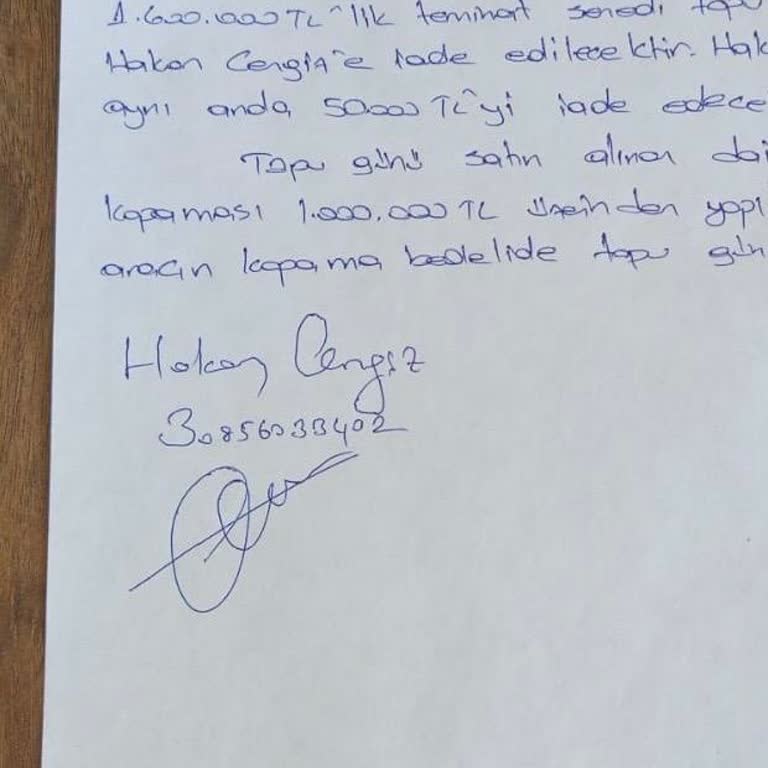 1.600.000 TL'lik teminat senedi tapu
Hakan Cengiz'e iade edilecektir. Hak
aynı anda 50000 TL'yi iade edece
Tapu günü satın alınan dai
kapaması 1.000.000 TL üzeinden yapı
aracın kapama bedelide tapu gün
Hakan Cengiz
30856033402